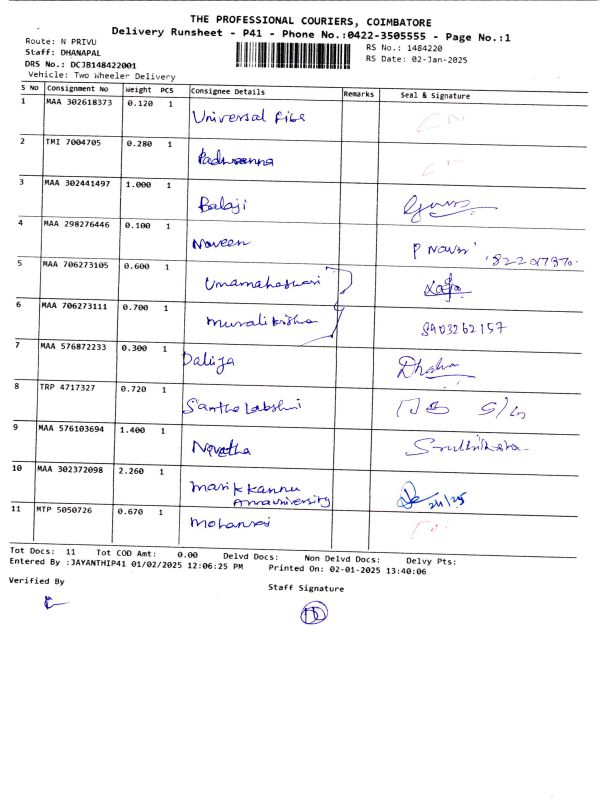 THE PROFESSIONAL COURIERS, COIMBATORE
Delivery Runsheet - P41 - Phone No.:0422-3505555 - Page No.:1
Route: N PRIVU
RS No.: 1484220
Staff: DHANAPAL
RS Date: 02-Jan-2025
DRS No.: DCJB148422001
Vehicle: Two Wheeler Delivery
S No Consignment No Weight PCS Consignee Details Remarks Seal & Signature
1 MAA 302618373 0.120 1
Universal
2 TMI 7004705 0.280 1
3 MAA 302441497 1.000 1
Balaji
4 MAA 298276446 0.100 1
Naveen
5 MAA 706273105 0.600 1
Umamaheswari
6 MAA 706273111 0.700 1
Muralikrishna 8903262157
7 MAA 576872233 0.300 1
8 TRP 4717327 0.720 1
9 MAA 576103694 1.400 1
10 MAA 302372098 2.260 1
11 MTP 5050726 0.670 1
Tot Docs: 11 Tot COD Amt: 0.00 Delvd Docs: Non Delvd Docs: Delvy Pts:
Entered By :JAYANTHIP41 01/02/2025 12:06:25 PM Printed On: 02-01-2025 13:40:06
Verified By
Staff Signature